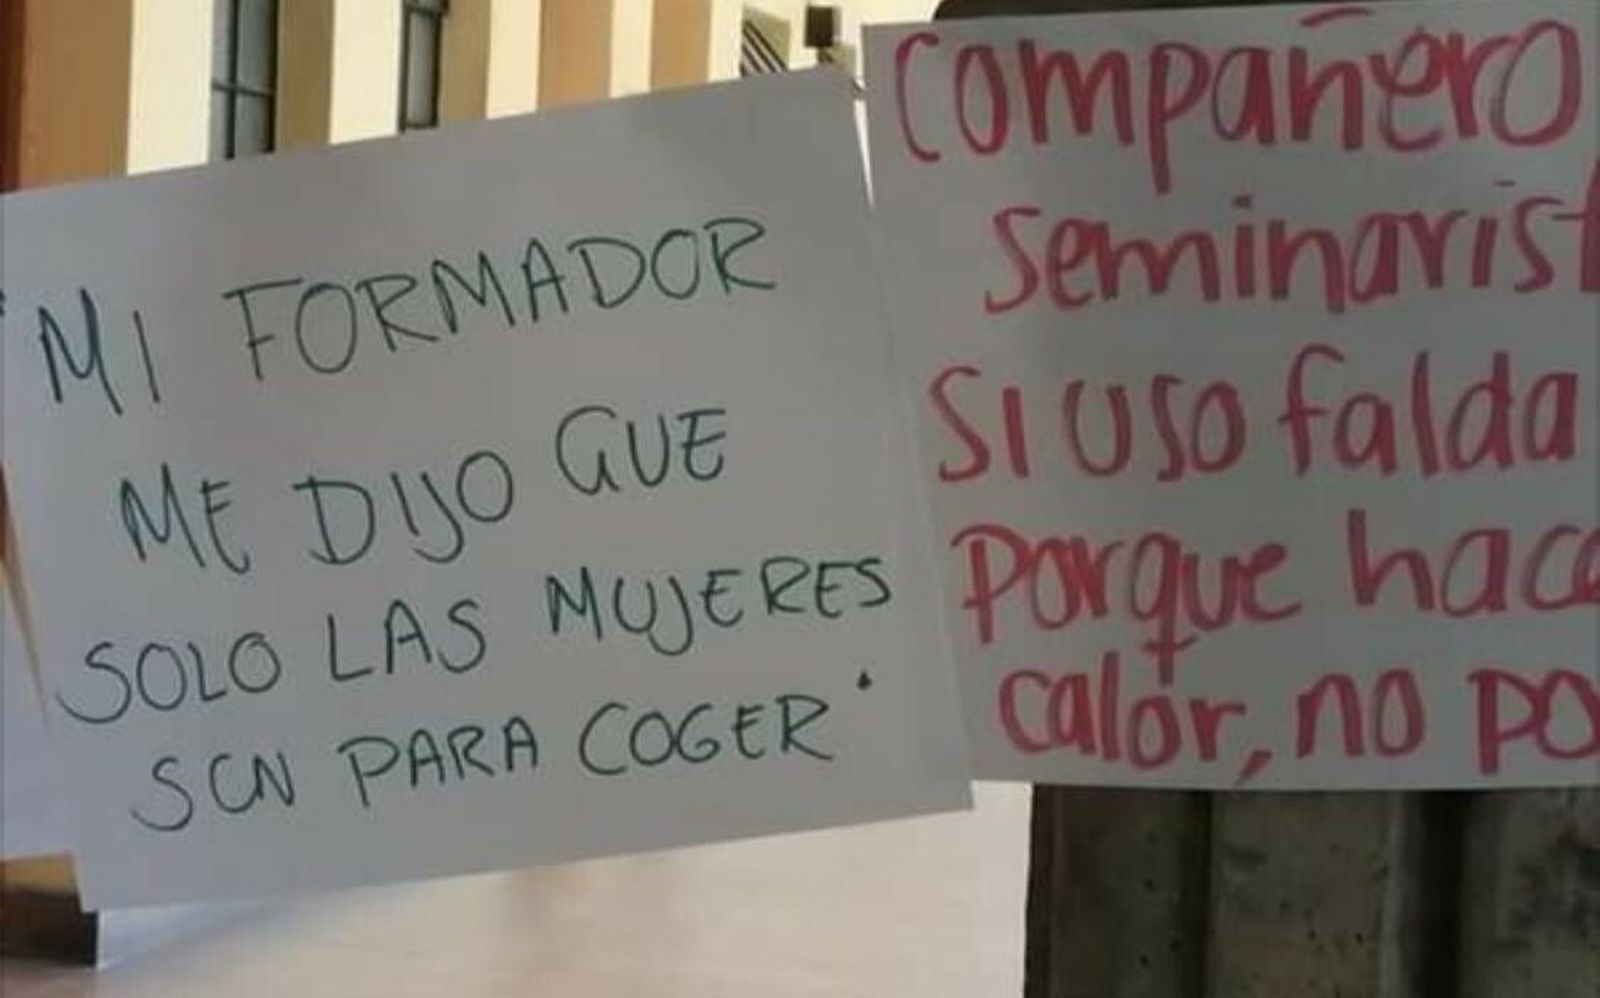 "MI FORMADOR
ME DIJO QUE
SOLO LAS MUJERES
SON PARA COGER"
Compañero
seminarist
Si uso falda
porque hace
calor, no po